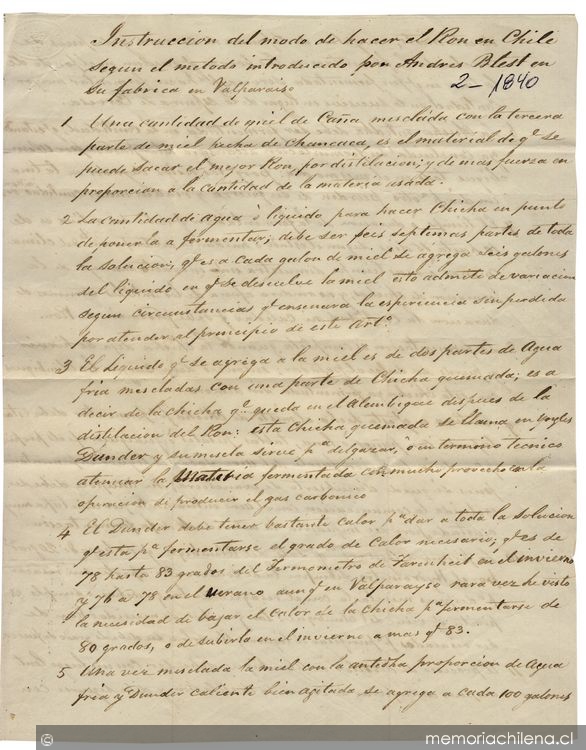 Instruccion del modo de hacer el Ron en Chile
segun el metodo introducido por Andres Blest en
su fabrica en Valparaiso
2 - 1840
1 Una cantidad de miel de Caña mesclada con la tercera
parte de miel hecha de Chancaca, es el material de q.e se
puede sacar el mejor Ron, por distilacion; y de mas fuerza en
proporcion a la cantidad de la materia usada.
2 La cantidad de agua ò liquido para hacer Chicha en punto
de ponerla a fermentar; debe ser seis septimas partes de toda
la solucion; q.e es a cada galon de miel se agrega seis galones
del liquido en q.e se desuelve la miel esto admite de variacion
segun circunstancias q.e enseñara la esperiencia sin perdida
por atender al principio de este Art.o
3 El Liquido q.e se agrega a la miel es de dos partes de Agua
fria mescladas con una parte de Chicha quemada; es a
decir de la chicha q.e queda en el Alambique despues de la
distilacion del Ron: esta Chicha quemada se llama en Yngles
Dunder y su mescla sirve p.a delgazar, ò en termino tecnico
atenuar la materia fermentada con mucho provecho en la
operacion de producir el gas carbonico
4 El Dunder debe tener bastante calor p.a dar a toda la solucion
q.e esta p.a fermentarse el grado de calor necesario; q.e es de
78 hasta 83 grados del Termometro de Farenheit en el invierno
y 76 a 78 en el verano aunq.e en Valparayso rara vez he visto
la necesidad de bajar el calor de la chicha p.a fermentarse de
80 grados, o de subirla en el invierno a mas q.e 83.
5 Una vez mesclada la miel con la antedha proporcion de Agua
fria y Dunder caliente bien agitada se agrega a cada 100 galones
memoriachilena.cl